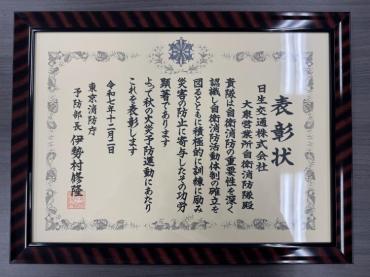 表彰状
日生交通株式会社
大泉営業所自衛消防隊殿
貴隊は自衛消防の重要性を深く
認識し自衛消防活動体制の確立を
図るとともに積極的に訓練に励み
災害の防止に寄与したその功労
顕著であります
よって秋の火災予防運動にあたり
これを表彰します
令和七年十二月二日
東京消防庁
予防部長 伊勢村修隆